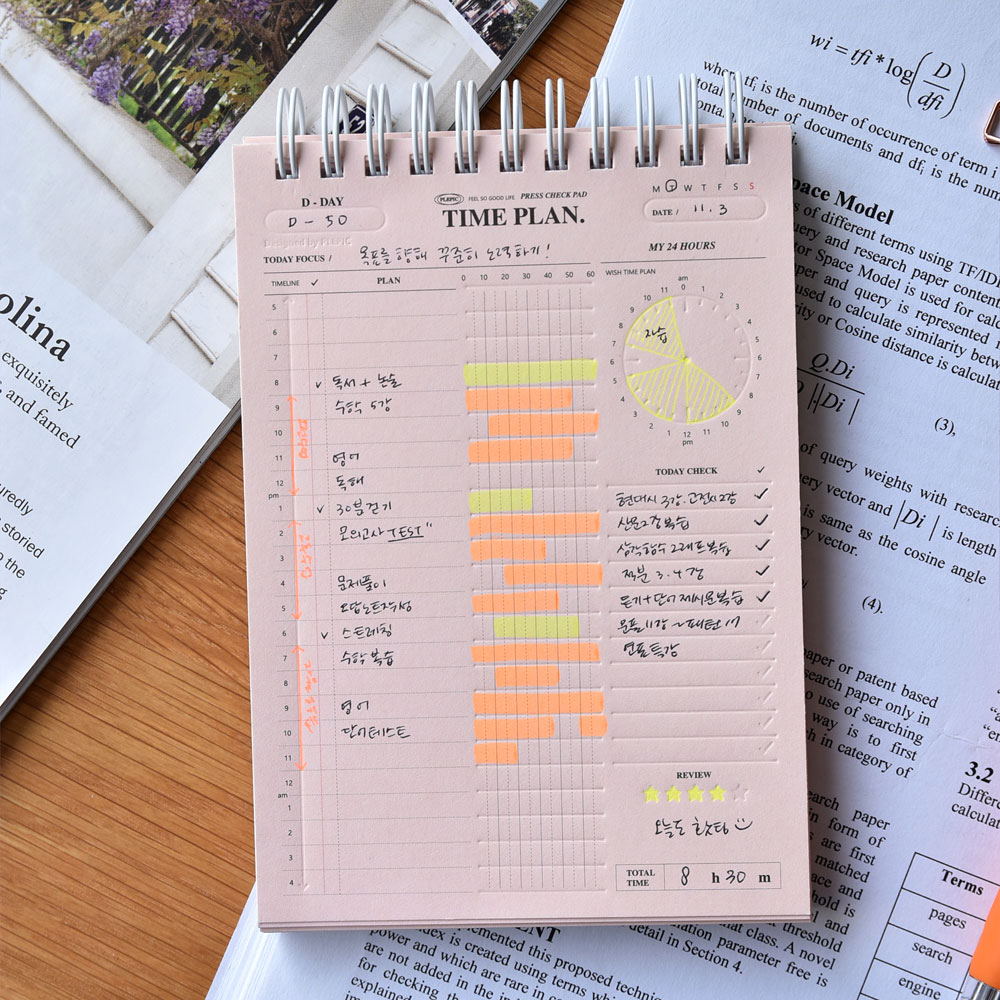 olina
exquisitely
, and famed
uredly
storied
to the
D - DAY
D - 50
Designed by PLEPIC
PLEPIC FEEL SO GOOD LIFE PRESS CHECK PAD
TIME PLAN.
M T W T F S S
DATE / 11.3
TODAY FOCUS / 목표를 향해 꾸준히 노력하기!
MY 24 HOURS
TIMELINE ✓ PLAN
0 10 20 30 40 50 60
WISH TIME PLAN
am
0 1 2 3 4 5 6 7 8 9 10 11 12 1 2 3 4 5 6 7 8 9 10 11
pm
자습
5
6
7
8 ✓ 독서 + 논술
9 수학 5강
10
11 영어
12 독해
pm
1 ✓ 30분 걷기
2 모의고사 TEST"
3
4 문제풀이
5 오답노트작성
6 ✓ 스트레칭
7 수학 복습
8
9 영어
10 단어테스트
11
12
am
1
2
3
4
TODAY CHECK ✓
현대시 3강. 고전시 2강 ✓
산문 2강 복습 ✓
삼각함수 2회독 복습 ✓
적분 3.4강 ✓
듣기+단어 제시문 복습 ✓
문풀 11강 ~ 패턴 17
언플 특강
REVIEW
오늘도 핫팅
TOTAL TIME 8 h 30 m
wi = tfi * log(D/dfi)
where tfi is the number of occurrence of term i
total number of documents and dfi is the num
contain
pace Model
s of different terms using TF/ID
query and research paper conten
tor Space Model is used for calc
aper and query is represented
used to calculate similarity betw
rity or Cosine distance is calcula
Q.Di
|Di|
(3),
of query weights with researc
ery vector and |Di| is length
is same as the cosine angle
vector.
(4).
aper or patent based
search paper only in
o use of searching
way is to first
ch in category of
3.2
Differe
calculat
earch paper
in form of
are first
matched
ace and
hold is
threshold
nal class. A novel
ation parameter free is
detail in Section 4.
Terms
pages
search
engine
ENT
emented this proposed technic
ndex is created using terms w
power and which are rare in c
are not added in the in
for checking the
explained